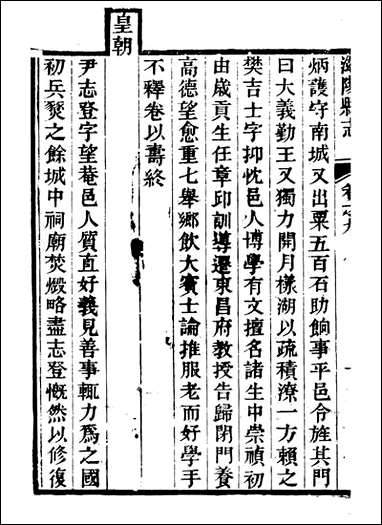 沭陽縣志
卷之九
炳護守南城又出粟五百石助餉事平邑令旌其門
曰大義勤王又獨力開月樣湖以疏積潦一方賴之
樊吉士字抑忱邑人博學有文擅名諸生中崇禎初
由歲貢生任章邱訓導遷東昌府教授告歸閉門養
高德望愈重七舉鄉飲大賓士論推服老而好學手
不釋卷以壽終
皇朝
尹志登字望菴邑人質直好義見善事輒力爲之國
初兵燹之餘城中祠廟焚燬略盡志登慨然以修復